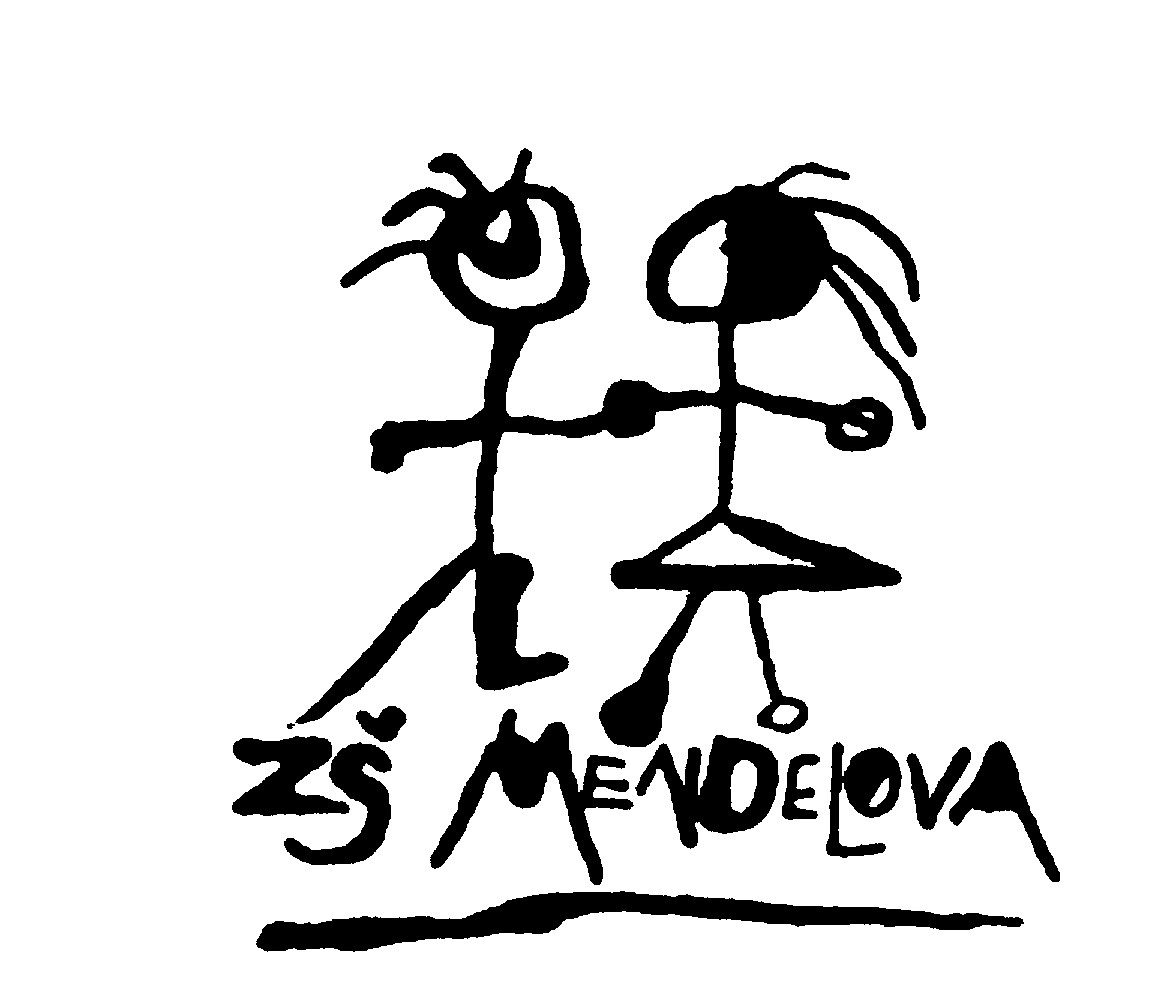 ZŠ MENDELOVA